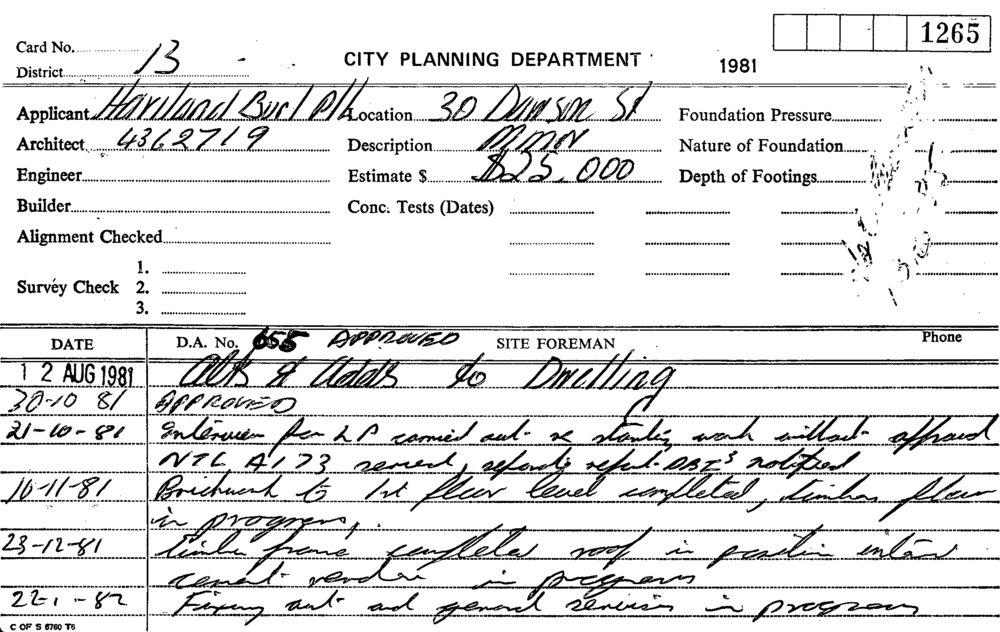 1265
Card No.
13
District
CITY PLANNING DEPARTMENT
1981
Applicant Hariland Buil P/L Location 30 Dawson St Foundation Pressure
Architect 4362719 Description Nature of Foundation
Engineer Estimate $ $25.000 Depth of Footings
Builder Conc. Tests (Dates)
Alignment Checked
1.
Survey Check 2.
3.
DATE D.A. No. 655 APPROVED SITE FOREMAN Phone
12 AUG 1981 Alts & Adds to Dwelling
30-10 81 APPROVED
21-10-81 Interview for LP carried out re starting work without approval
NTC A173 served, notified
16-11-81 Brickwork to 1st floor level completed, timber floor
in progress,
23-12-81 timber frame completed roof in position
cement render in progress
22-1-82 Fixing out and general services in progress
C OF S 6760 T6